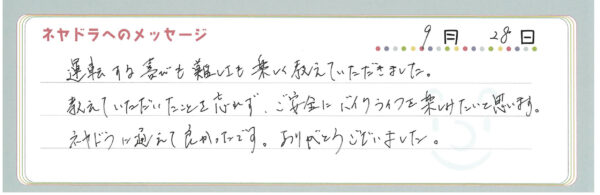 ネヤドラへのメッセージ
9月 28日
運転する喜びも難しさも楽しく教えていただきました。
教えていただいたことを忘れず、ご安全にバイクライフを楽しみたいと思います。
ネヤドラに通えて良かったです。ありがとうございました。